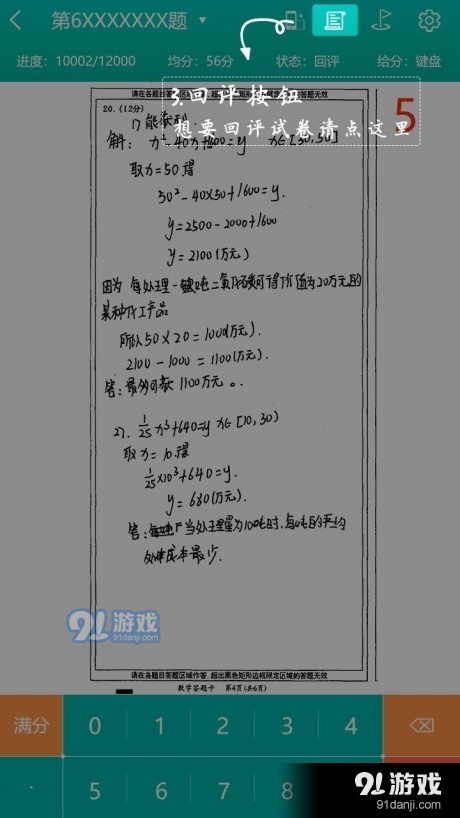 第6XXXXXXX题
进度：10002/12000 均分：56分 状态：回评 给分：键盘
请在各题目答题区域作答，超出黑色矩形边框限定区域的答题无效
3.回评按钮
想要回评试卷请点这里
5
20.（12分）
1) 能获利
解：
取x=50得
50²-40×50+1600=y.
y=2500-2000+1600
y=2100(万元)
因为 每处理一吨二氧化碳可得价值为20万元的
某种化工产品
所以50×20=1000(万元).
2100-1000=1100(万元).
答：最多可获1100万元。
2). 1/25 x³+640=y x∈[10,30)
取x=10.得
1/25×10³+640=y.
y=680(万元).
答：当处理量为100吨时,每吨的平均
处理成本最少.
91游戏
91danji.com
请在各题目答题区域作答，超出黑色矩形边框限定区域的答题无效
数学答题卡 第4页(共6页)
满分 0 1 2 3 4
. 5 6 7 8
91游戏
91danji.com